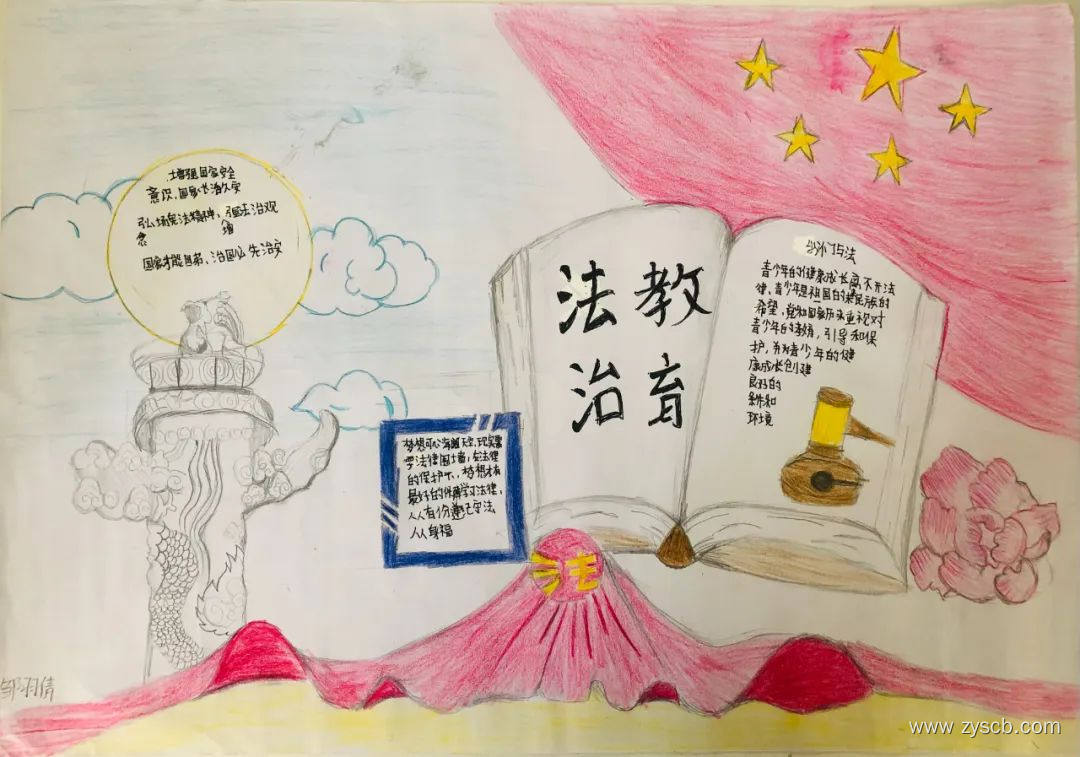 增强国家安全
意识,国家长治久安
弘扬宪法精神,强法治观
增
念
国家才能自弱、治国必先治安
法 教
治 育
我们与法
青少年的健康成长离不开法
律,青少年是祖国的未民族的
希望,党和国家历来重视对
青少年的教育,引导和保
护,并为青少年的健
康成长创建
良好的
条件和
环境
梦想可以海阔天空,现实需
要法律围墙;在法律
的保护下,梦想才有
最好的伴奏学习法律,
人人有份遵纪守法
人人幸福
法
邹羽倩
www.zyscb.com